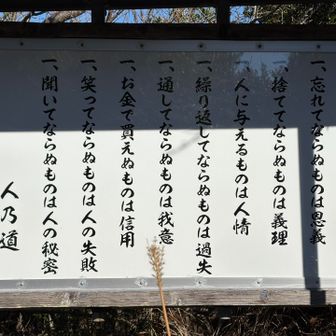 一、忘れてならぬものは恩義
一、捨ててならぬものは義理
一、人に与えるものは人情
一、繰り返してならぬものは過失
一、通してならぬものは我意
一、お金で買えぬものは信用
一、笑ってならぬものは人の失敗
一、聞いてならぬものは人の秘密
人乃道